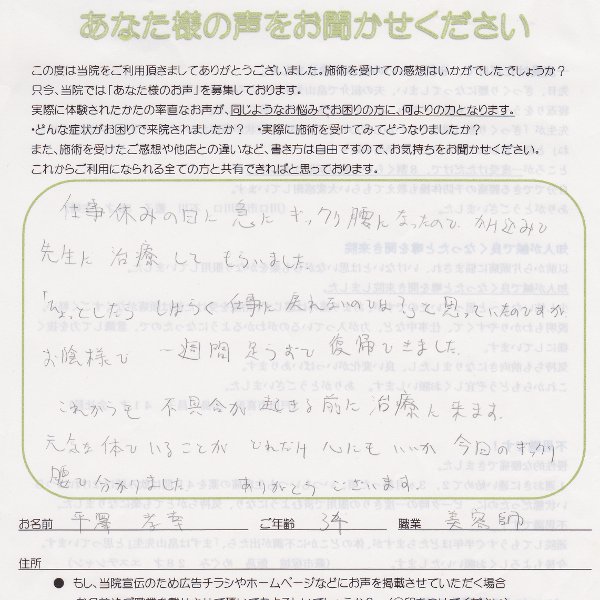 あなた様の声をお聞かせください
この度は当院をご利用頂きましてありがとうございました。施術を受けての感想はいかがでしたでしょうか?
只今、当院では「あなた様のお声」を募集しております。
実際に体験されたかたの率直なお声が、同じようなお悩みでお困りの方に、何よりの力となります。
・どんな症状がお困りで来院されましたか? ・実際に施術を受けてみてどうなりましたか?
また、施術を受けたご感想や他店との違いなど、書き方は自由ですので、お気持ちをお聞かせください。
これからご利用になられる全ての方と共有できればと思っております。
仕事休みの日に急にギックリ腰になったので、かけ込みで
先生に治療してもらいました。
「もしかしたら しばらく仕事に戻れないのでは?」と思っていたのですが
お陰様で 一週間足らずで復帰できました。
これからも 不具合が起きる前に治療に来ます。
元気な体でいることが どれだけ心にもいいか 今回のギックリ
腰で分かりました。 ありがとうございます。
お名前 平澤 孝幸 ご年齢 34 職業 美容師
住所
● もし、当院宣伝のため広告チラシやホームページなどにお声を掲載させていただく場合